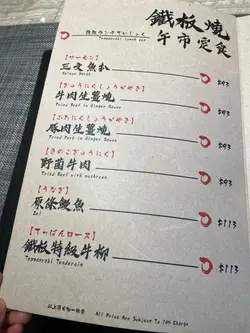 鐵板燒
午市定食
鉄板ランチていしょく
Teppanyaki lunch set
【サーモン】
三文魚扒
Salmon Steak
$93
【ぎゅうにくしょうがやき】
牛肉生薑燒
Fried Beef in Ginger Sauce
$93
【ぶたにくしょうがやき】
豚肉生薑燒
Fried Pork in Ginger Sauce
$93
【きのこぎゅうにく】
野菌牛肉
Fried Beef with mushroom
$93
【うなぎ】
原條鰻魚
Eel
$113
【てっぱんロース】
鐵板特級牛柳
Teppanyaki Tenderloin
$113
以上項目加一服務
All Price Are Subject To 10% Charge